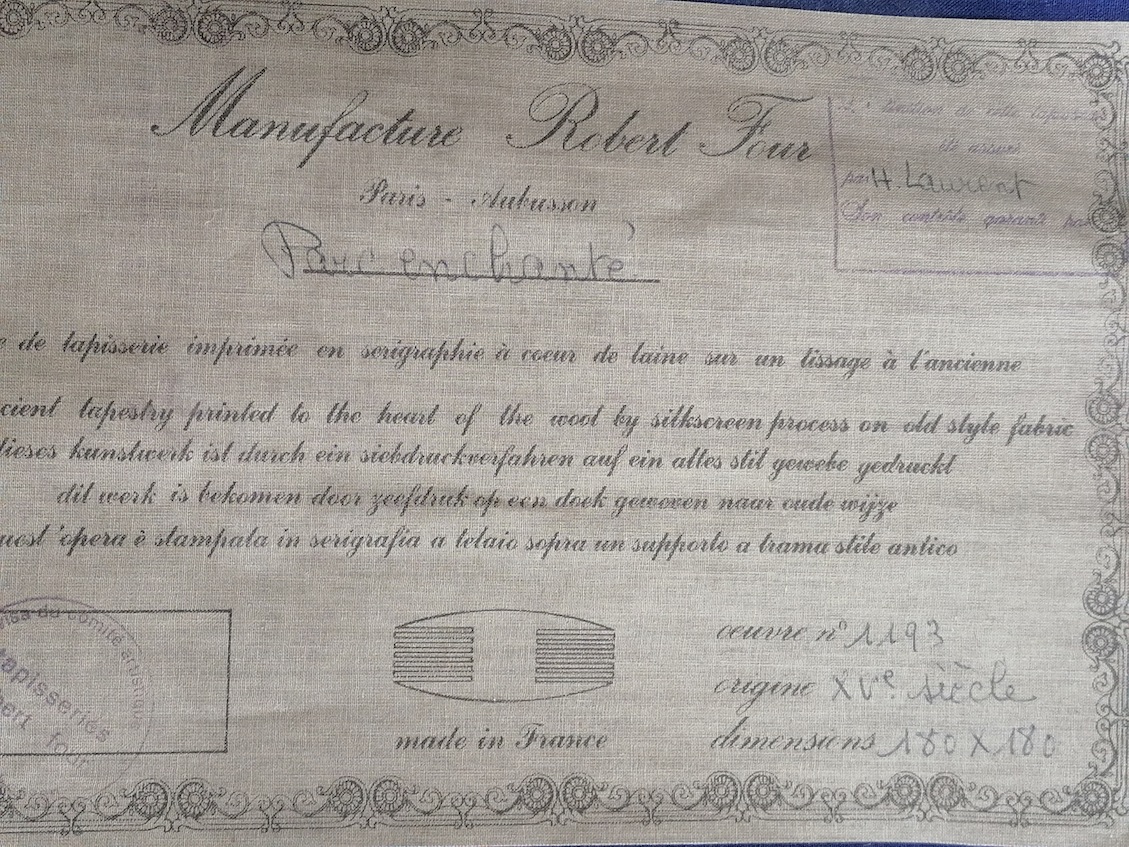 Manufacture Robert Four
Paris - Aubusson
Parc enchanté
de cette
été assuré
par H. Laurent
Son contrôle garant
e de tapisserie imprimée en serigraphie à coeur de laine sur un tissage à l'ancienne
cient tapestry printed to the heart of the wool by silkscreen process on old style fabric
dieses kunstwerk ist durch ein siebdruckverfahren auf ein altes stil gewebe gedruckt
dit werk is bekomen door zeefdruk op een doek geweven naar oude wijze
uest'opera è stampata in serigrafia a telaio sopra un supporto a trama stile antico
visa du comité artistique
tapisseries
bert four
made in France
oeuvre n° 1193
origine XVe siècle
dimensions 180 X 180